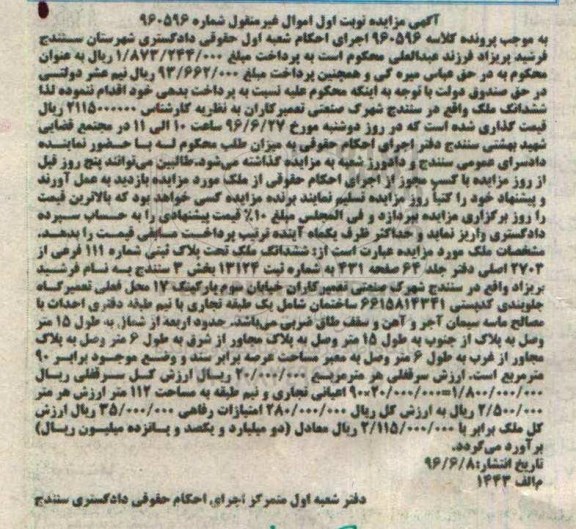 آگهی مزایده نوبت اول اموال غیرمنقول شماره ۹۶۰۵۹۶
به موجب پرونده کلاسه ۹۶۰۵۹۶ اجرای احکام شعبه اول حقوقی دادگستری شهرستان سنندج
فرشید پریزاد فرزند عبدالعلی محکوم است به پرداخت مبلغ ۱/۸۷۳/۲۴۴/۰۰۰ ریال به عنوان
محکوم به در حق عباس میره گی و همچنین پرداخت مبلغ ۹۳/۶۶۲/۰۰۰ ریال نیم عشر دولتی
در حق صندوق دولت با توجه به اینکه محکوم علیه نسبت به پرداخت بدهی خود اقدام ننموده لذا
ششدانگ ملک واقع در سنندج شهرک صنعتی تعمیرکاران به نظریه کارشناس ۲۱۱۵۰۰۰۰۰۰ ریال
قیمت گذاری شده است که در روز دوشنبه مورخ ۹۶/۶/۲۷ ساعت ۱۰ الی ۱۱ در مجتمع قضایی
شهید بهشتی سنندج دفتر اجرای احکام حقوقی به میزان طلب محکوم له با حضور نماینده
دادسرای عمومی سنندج و دادورز شعبه به مزایده گذاشته می‌شود.طالبین می‌توانند پنج روز قبل
از روز مزایده با کسب مجوز از اجرای احکام حقوقی از ملک مورد مزایده بازدید به عمل آورند
و پیشنهاد خود را کتباً روز مزایده تسلیم نمایند برنده مزایده کسی خواهد بود که بالاترین قیمت
را روز برگزاری مزایده بپردازد و فی المجلس مبلغ ۱۰٪ قیمت پیشنهادی را به حساب سپرده
دادگستری واریز نماید و حداکثر ظرف یکماه آینده ترتیب پرداخت مابقی قیمت را بدهد.
مشخصات ملک مورد مزایده عبارت است از: ششدانگ ملک تحت پلاک ثبتی شماره ۱۱۱ فرعی از
۲۷۰۳ اصلی دفتر جلد ۶۴ صفحه ۴۳۱ به شماره ثبت ۱۳۱۲۴ بخش ۳ سنندج به نام فرشید
پریزاد واقع در سنندج شهرک صنعتی تعمیرکاران خیابان سوم پارکینگ ۱۷ محل فعلی تعمیرگاه
جلوبندی کدپستی ۶۶۱۵۸۱۴۳۴۱ ساختمان شامل یک طبقه تجاری با نیم طبقه دفتری احداث با
مصالح ماسه سیمان آجر و آهن و سقف طاق ضربی می‌باشد.حدود اربعه از شمال به طول ۱۵ متر
وصل به پلاک از جنوب به طول ۱۵ متر وصل به پلاک مجاور از شرق به طول ۶ متر وصل به پلاک
مجاور از غرب به طول ۶ متر وصل به معبر مساحت عرصه برابر سند و وضع موجود برابر ۹۰
مترمربع است. ارزش سرقفلی هر مترمربع ۲۰/۰۰۰/۰۰۰ ریال ارزش کل سرقفلی ریال
۱/۸۰۰/۰۰۰/۰۰۰=۲۰/۰۰۰/۰۰۰*۹۰ اعیانی تجاری و نیم طبقه به مساحت ۱۱۲ متر ارزش هر متر
۲/۵۰۰/۰۰۰ ریال به ارزش کل ریال ۲۸۰/۰۰۰/۰۰۰ امتیازات رفاهی ۳۵/۰۰۰/۰۰۰ ریال ارزش
کل ملک برابر با ۲/۱۱۵/۰۰۰/۰۰۰ ریال معادل (دو میلیارد و یکصد و پانزده میلیون ریال)
برآورد می‌گردد.
تاریخ انتشار:۹۶/۶/۸
م‌الف ۱۴۴۳
دفتر شعبه اول متمرکز اجرای احکام حقوقی دادگستری سنندج